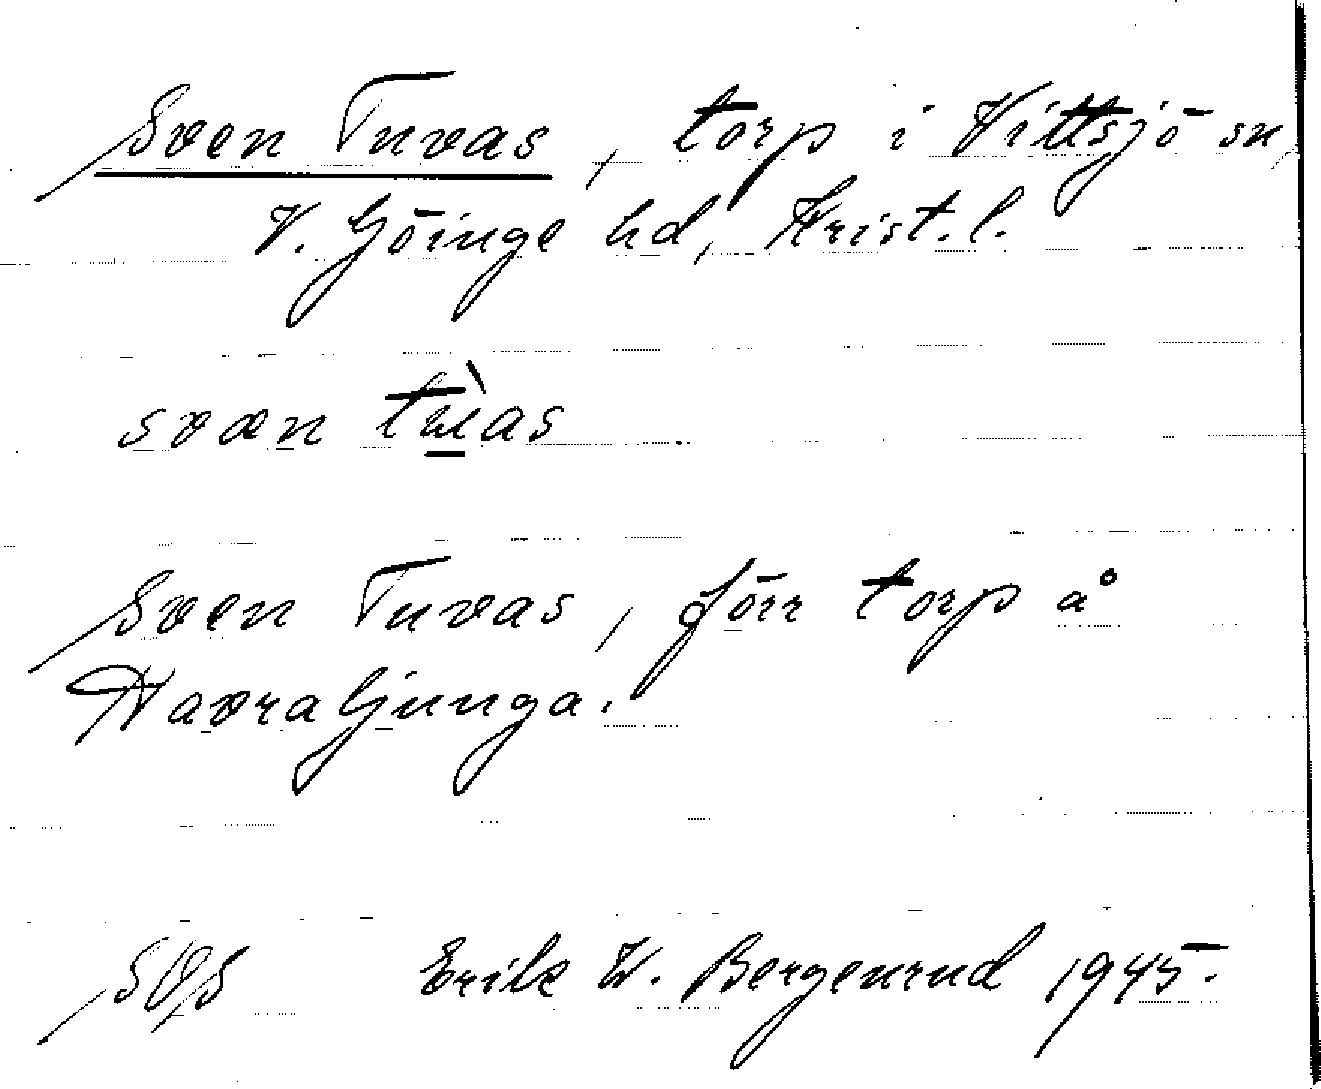 Sven Tuvas, torp i Vittsjö sn,
V. Göinge hd, Krist. l.
svæn tùas
Sven Tuvas, förr torp å
Havraljunga.
SOS Erik W. Bergenrud 1945.